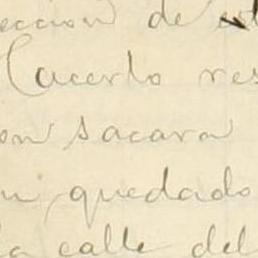 eccion de
Cacerlo res
on sacara
n quedado
la calle del